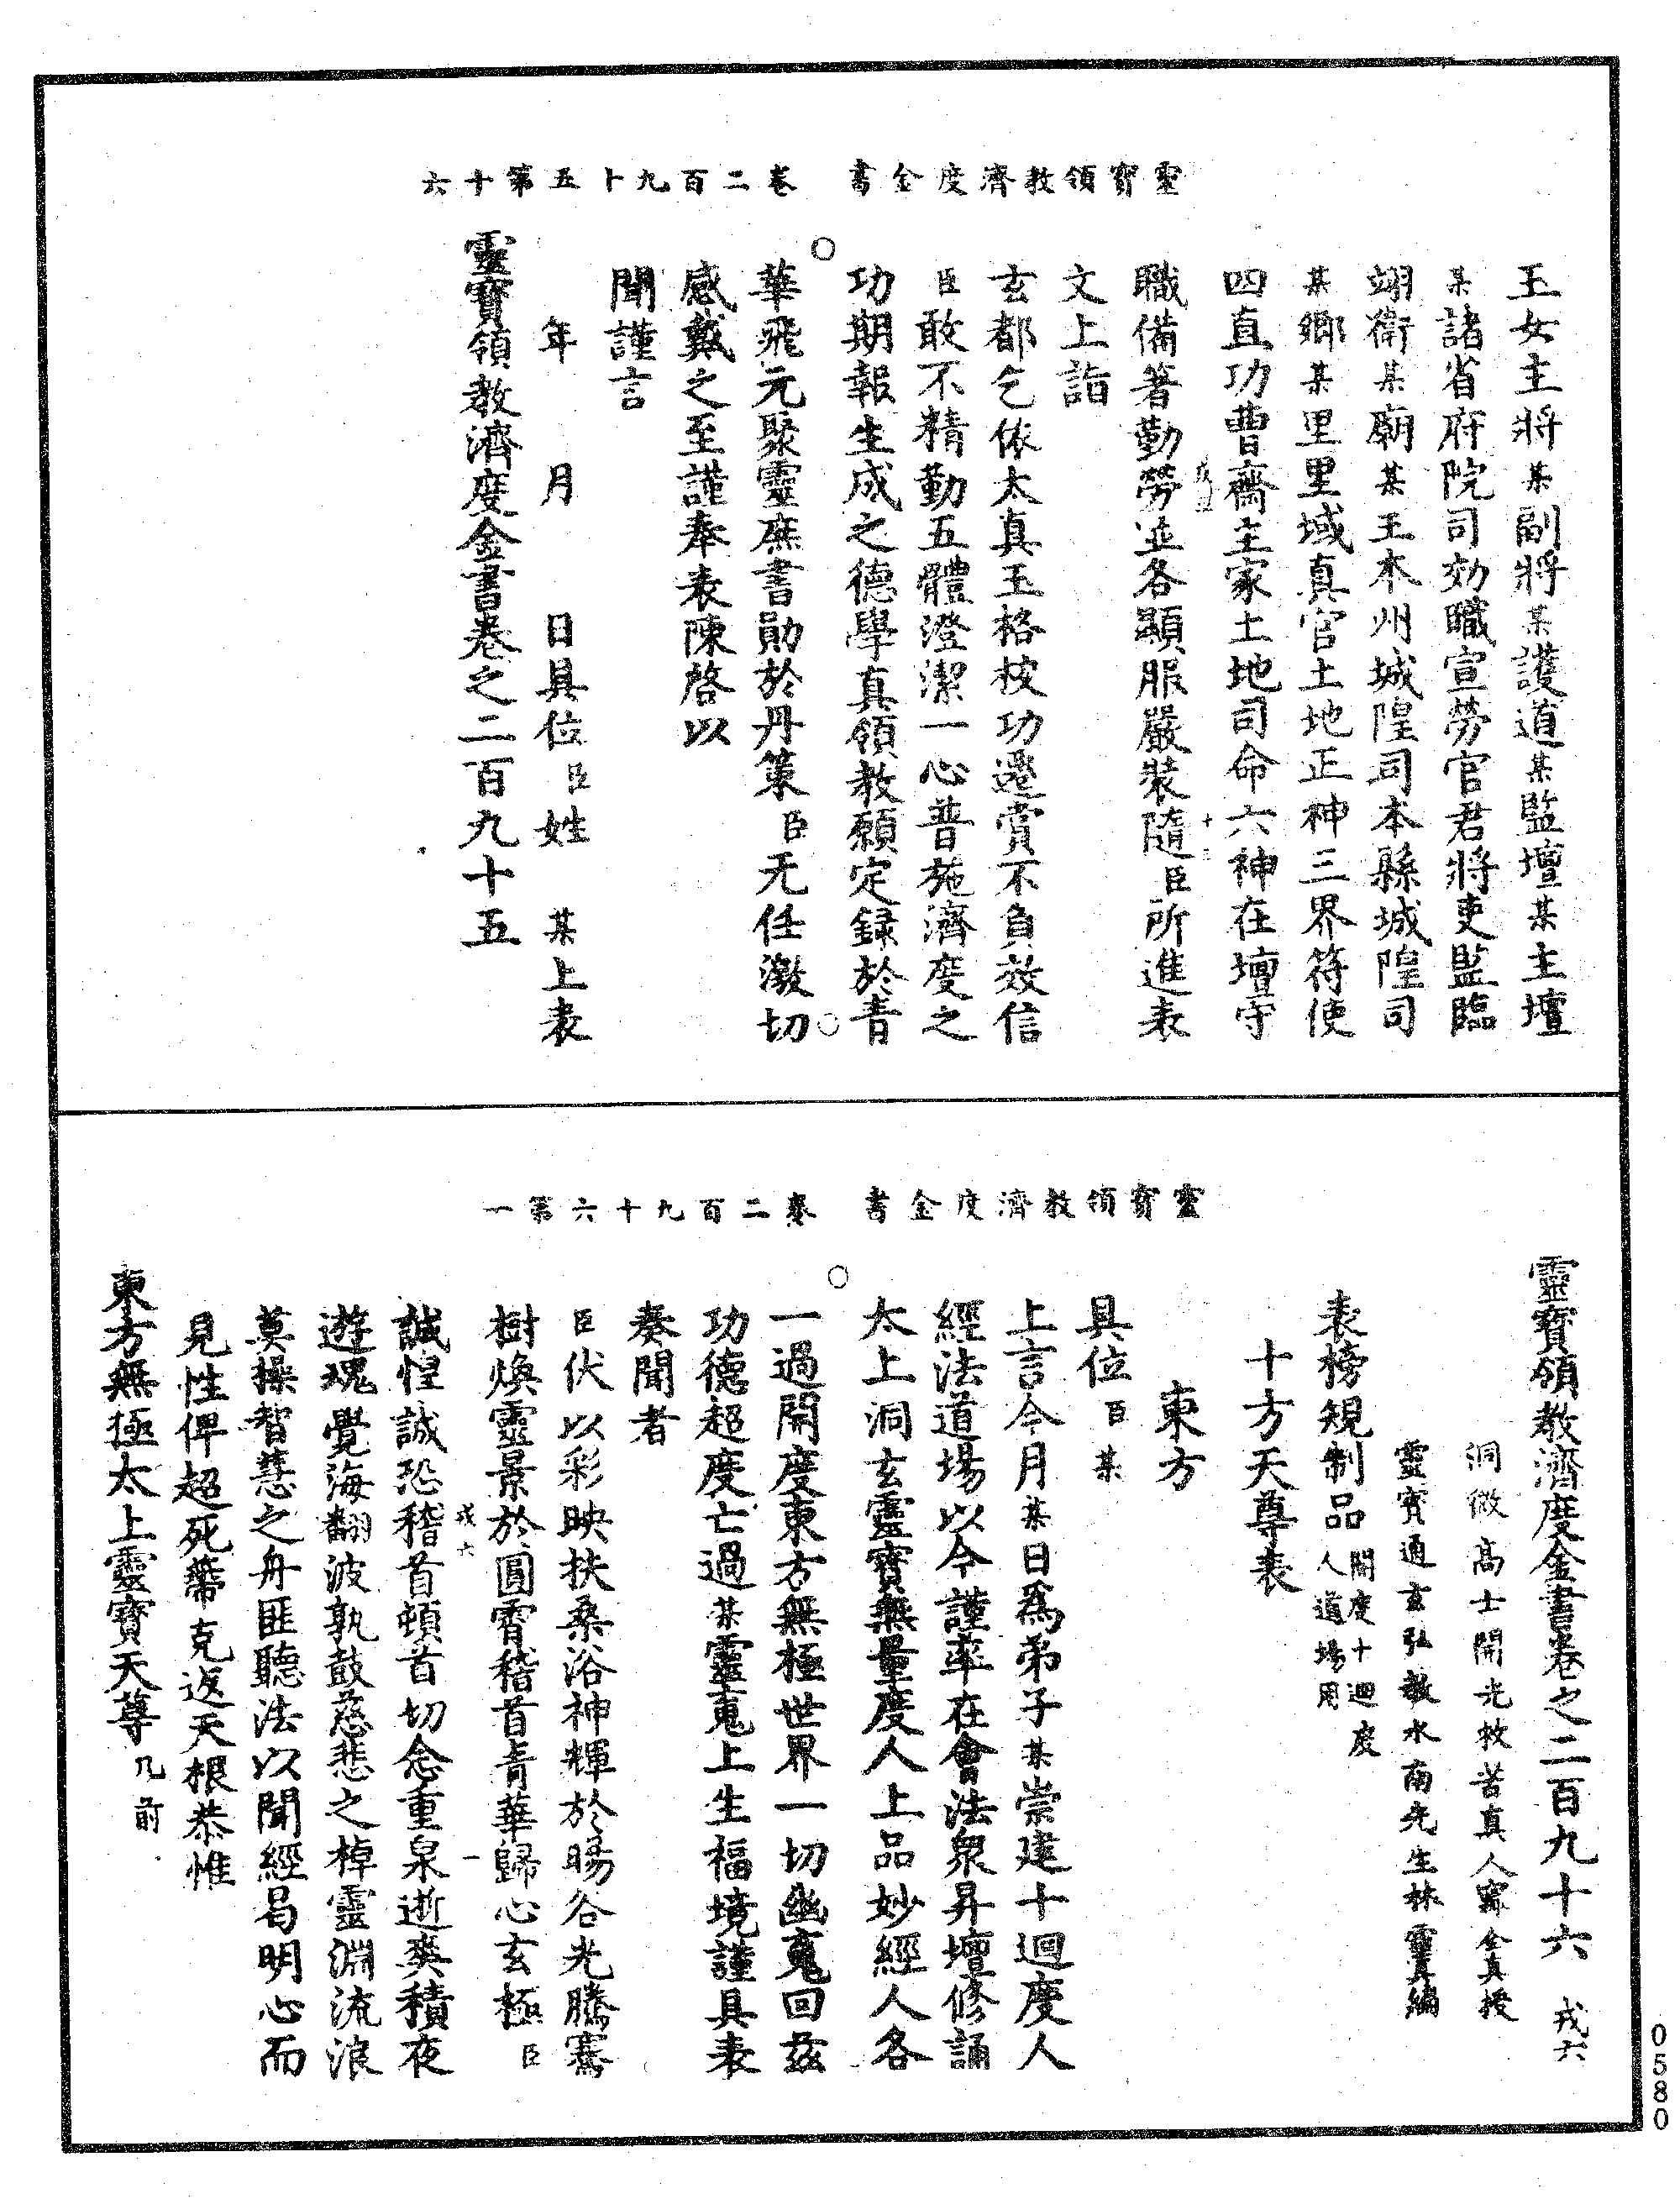 靈寶領教濟度金書 卷二百九十五第十六
玉女主將某副將某護道某監壇某主壇
某諸省府院司効職宣勞官君將吏監臨
翊衛某廟某王本州城隍司本縣城隍司
某鄉某里里域真官土地正神三界符使
四直功曹齋主家土地司命六神在壇守
職備著勤勞並各顯服嚴裝隨臣所進表
文上詣
玄都乞依太真玉格校功遷賞不負效信
臣敢不精勤五體澄潔一心普施濟度之
功期報生成之德學真領教願定録於青
華飛元聚靈庶書勛於丹策臣无任激切
感戴之至謹奉表陳啓以
聞謹言
年 月 日具位臣姓 某上表
靈寶領教濟度金書卷之二百九十五
靈寶領教濟度金書 卷二百九十六第一
靈寶領教濟度金書卷之二百九十六 戎六
洞微高士開光救苦真人甯全真授
靈寶通玄弘教水南先生林靈真編
表榜規制品 開度十迴度人道場用
十方天尊表
東方
具位臣某
上言今月某日為弟子某崇建十迴度人
經法道場以今謹率在會法衆昇壇修誦
太上洞玄靈寶無量度人上品妙經人各
一過開度東方無極世界一切幽䰟回茲
功德超度亡過某靈䰟上生福境謹具表
奏聞者
臣伏以彩映扶桑浴神輝於暘谷光騰騫
樹煥靈景於圓霄稽首青華歸心玄極臣
誠惶誠恐稽首頓首切念重泉逝爽積夜
遊䰟覺海翻波孰鼓慈悲之棹靈淵流浪
莫操智慧之舟匪聽法以聞經曷明心而
見性俾超死蔕克返天根恭惟
東方無極太上靈寶天尊几前
戎六 一
0580